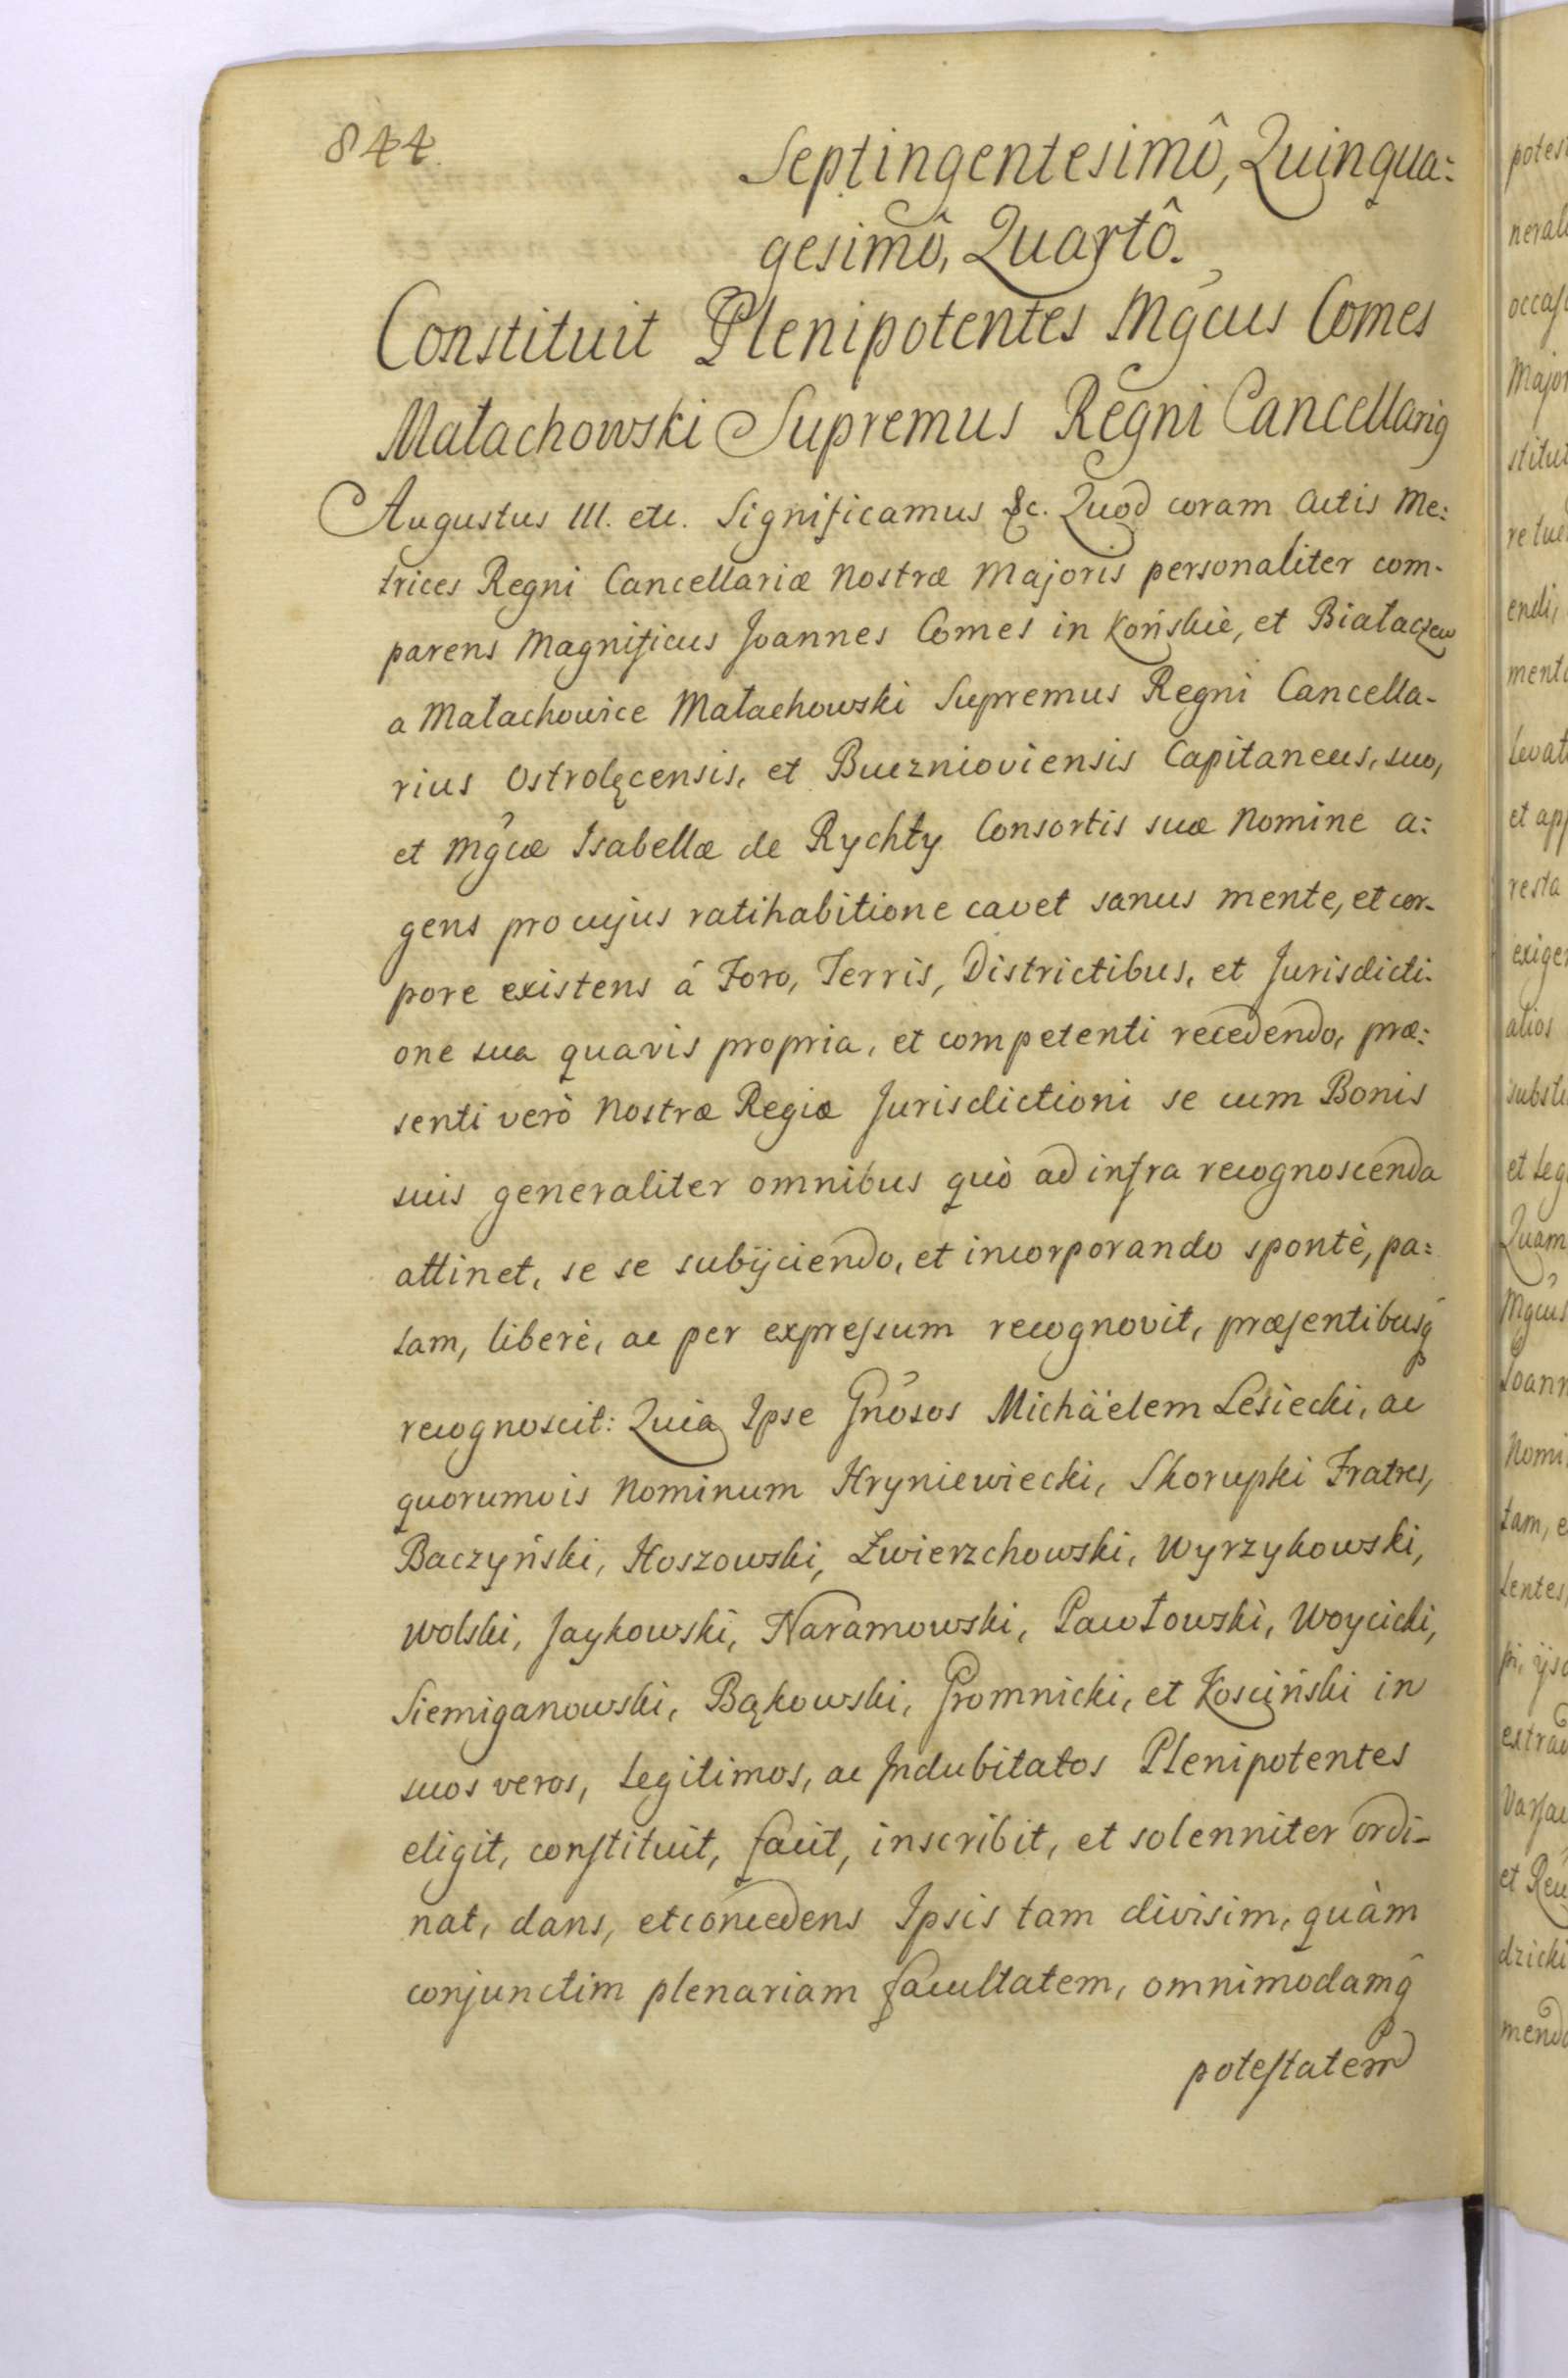 844.
Septingentesimô, Quinqua:
gesimô, Quartô.
Constituit Plenipotentes Mgcus Comes
Małachowski Supremus Regni Cancellarig
Augustus III. etc. Significamus &c. Quod coram Actis Me:
trices Regni Cancellariæ Nostræ Majoris personaliter com-
parens Magnificus Joannes Comes in Końskie, et Białaczew
a Małachowice Małachowski Supremus Regni Cancella-
rius Ostrolęcensis, et Bucznioviensis Capitaneus, suo,
et Mgcæ Isabellæ de Rychły Consortis suæ Nomine a:
gens pro cujus ratihabitione cavet sanus mente, et cor-
pore existens á Foro, Terris, Districtibus, et Jurisdicti-
one sua quavis propria, et competenti recedendo, præ:
senti verò Nostræ Regiæ Jurisdictioni se cum Bonis
suis generaliter omnibus quò ad infra recognoscenda
attinet, se se subijciendo, et incorporando spontè, pa:
lam, liberè, ac per expreſsum recognovit, præſentibusq
recognoscit: Quia Ipse Gnosos Michäelem Lesiecki, ac
quorumvis Nominum Hryniewiecki, Skorupki Fratres,
Baczyński, Hoszowski, Zwierzchowski, Wyrzykowski,
Wolski, Jaykowski, Naramowski, Pawłowski, Woycicki,
Siemiganowski, Bąkowski, Gromnicki, et Kosciński in
suos veros, Legitimos, ac Indubitatos Plenipotentes
eligit, conſtituit, facit, inscribit, et solenniter ordi-
nat, dans, et concedens Ipsis tam divisim, quàm
conjunctim plenariam facultatem, omnimodamq̂
poteſtatem
potes
occaſ
Major
stitui
endi,
et app
resta
exige
alios
et Leg
Quam
Mgcus
Joann
Nomi
tam, e
tentes,
et Rei
dzicki
mendo